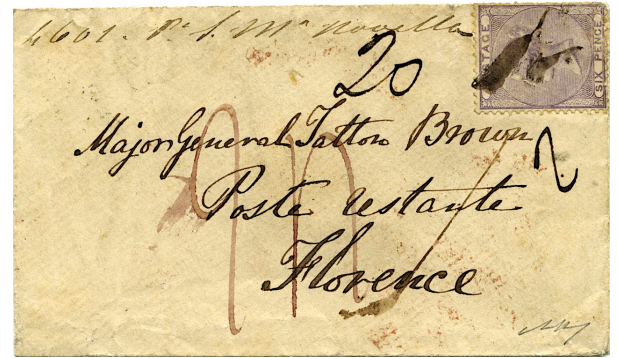 4601. Pr S. Ma Novella
POSTAGE SIX PENCE
20
Major General Tatton Brown
2
Poste restante
Florence